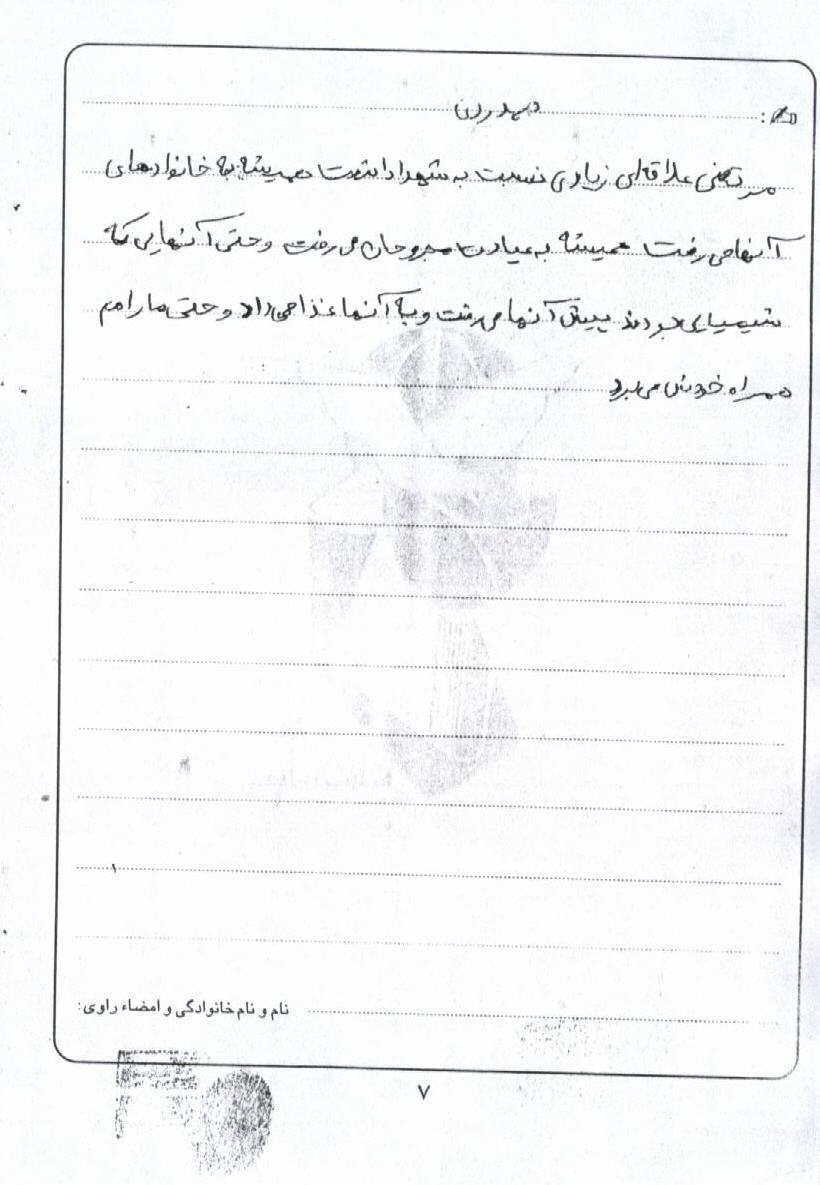 همدردی
مرتضی علاقه‌ای زیادی نسبت به شهدا داشت همیشه به خانوادهای
آنها می رفت همیشه به عیادت مجروحان می رفت و حتی آنهایی که
شیمیایی بودند پیش آنها می رفت و به آنها غذا می داد و حتی ما را هم
همراه خودش می برد
نام و نام خانوادگی و امضاء راوی:
۷